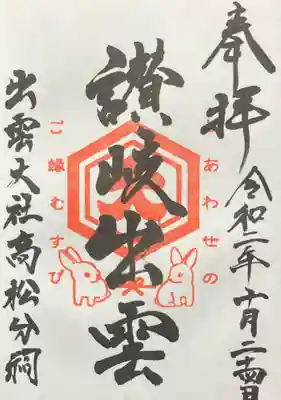 奉拝
令和二年十月二十四日
あわせの
讃岐出雲
ご縁むすび
出雲大社高松分祠